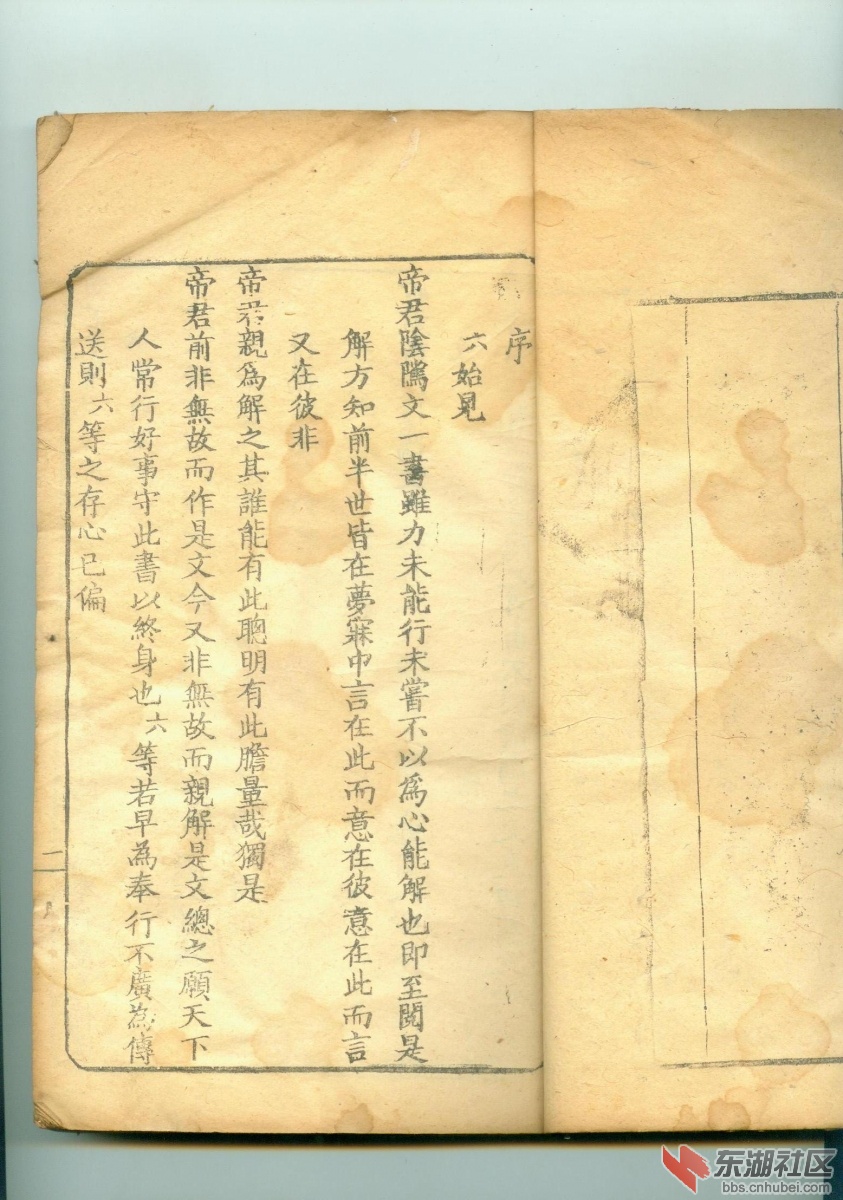 序
六始見
帝君陰隲文一書雖力未能行未嘗不以爲心能解也即至閱是
解方知前半世皆在夢寐中言在此而意在彼意在此而言
又在彼非
帝君親爲解之其誰能有此聰明有此膽量哉獨是
帝君前非無故而作是文今又非無故而親解是文總之願天下
人常行好事守此書以終身也六等若早為奉行不廣為傳
送則六等之存心已偏
一
东湖社区
bbs.cnhubei.com